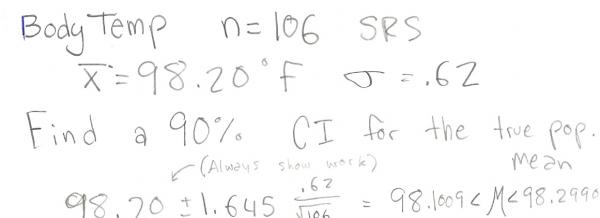 Body Temp n=106 SRS
x̄=98.20°F σ=.62
Find a 90% CI for the true pop. mean
(Always show work)
98.20 ± 1.645 .62/√106 = 98.1009<M<98.2990